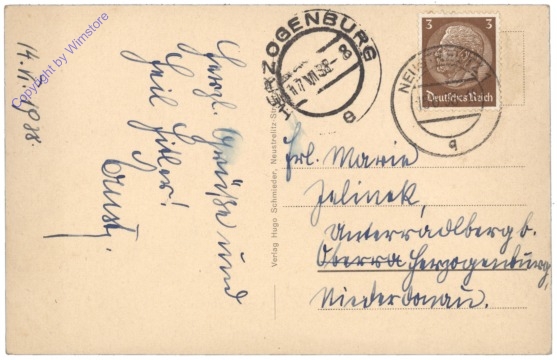 Copyright by Wimstore
14.VI.1938
Herzl. Grüße und
Heil Hitler!
Gustf.
Verlag Hugo Schmieder, Neustrelitz-Str
HERZOGENBURG
17.VI.38
8
e
NEUSTRELITZ
q
3 3
Deutsches Reich
Frl. Marie
Jelinek,
Unterradlberg b.
Oberra Herzogenburg,
Niederdonau.